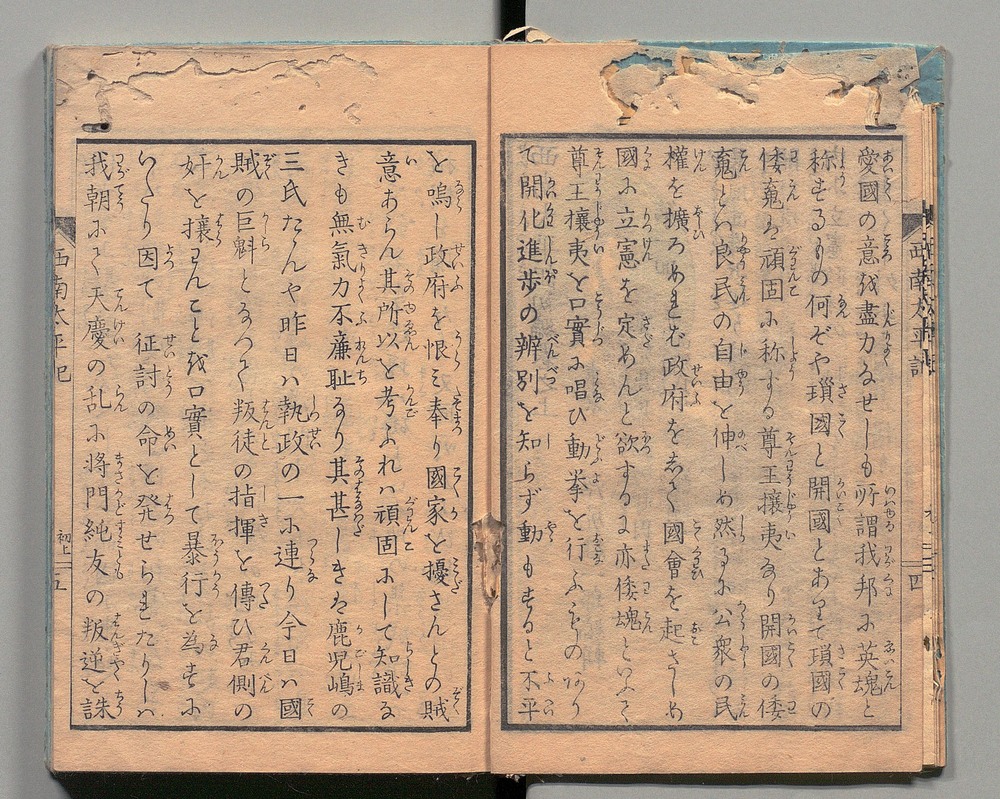 愛國の意を盡力なせしも所謂我邦に英魂と
称するもの何ぞや瑣國と開國とありて瑣國の
倭魂は頑固に称する尊王攘夷なり開國の倭
魂とハ良民の自由を伸しめ然るに公衆の民
權を擴ろめまた政府をして國會を起さしめ
國に立憲を定めんと欲するは亦倭魂といふて
尊王攘夷を口實に唱ひ動拳を行ふものあり
て開化進歩の辨別を知らず動もすると不平
を鳴し政府を恨ミ奉り國家を擾さんとの賊
意あらん其所以を考ふれハ頑固にして知識な
きも無氣力不廉耻なり其甚しきは鹿児嶋の
三氏たんや昨日ハ執政の一に連り今日ハ國
賊の巨魁となつて叛徒の指揮を傳ひ君側の
奸を攘わんことを口實として暴行を為すに
いたり因て 征討の命を発せられたりしハ
我朝にて天慶の乱に将門純友の叛逆を誅
西南太平記
四
西南太平記
初上
五